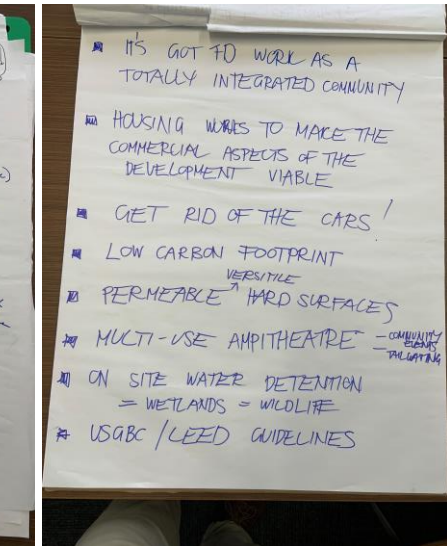 IT'S GOT TO WORK AS A
TOTALLY INTEGRATED COMMUNITY
HOUSING WORKS TO MAKE THE
COMMERCIAL ASPECTS OF THE
DEVELOPMENT VIABLE
GET RID OF THE CARS!
LOW CARBON FOOTPRINT
VERSITILE
PERMEABLE HARD SURFACES
MULTI-USE AMPITHEATRE = COMMUNITY
EVENTS
TAILGATING
ON SITE WATER DETENTION
= WETLANDS = WILDLIFE
USGBC / LEED GUIDELINES